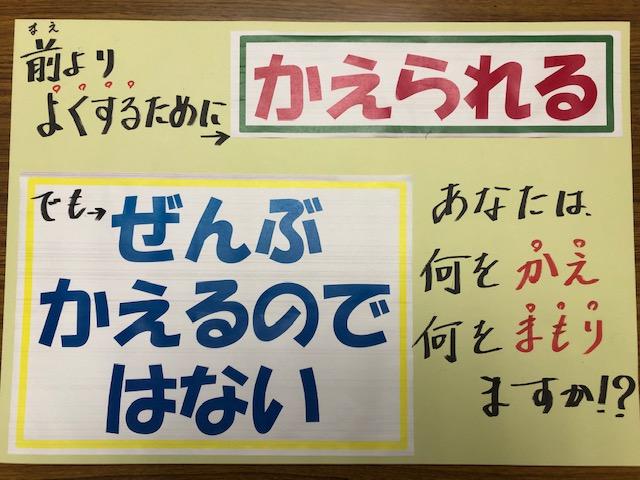 まえ
前より
よくするために→
かえられる
でも→
ぜんぶ
かえるので
はない
あなたは、
何をかえ
何をまもり
ますか!?